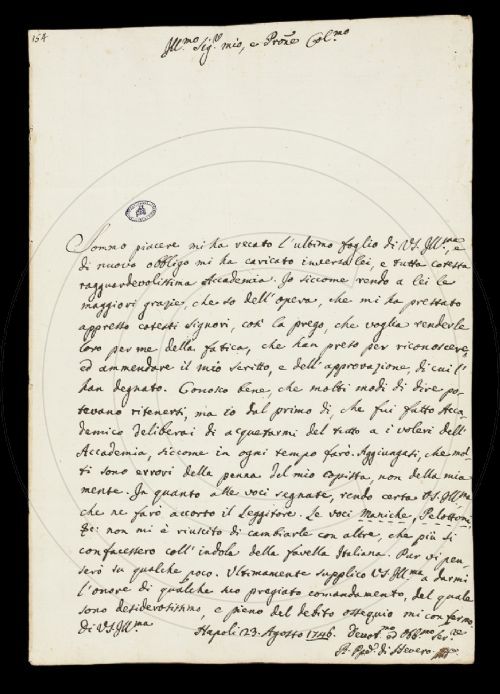 154
Ill.mo Sig.r mio, e Prone Col.mo
Sommo piacere mi ha recato l'ultimo foglio di V.S. Ill.ma, e
di nuovo obbligo mi ha caricato inverso lei, e tutta cotesta
ragguardevolissima Accademia. Io siccome rendo a lei le
maggiori grazie, che so dell'opera, che mi ha prestato
appresso cotesti Signori, così la prego, che voglia renderle
loro per me della fatica, che han preso per riconoscere,
ed ammendare il mio scritto, e dell'approvazione, di cui l'
han degnato. Conosco bene, che molti modi di dire po-
tevano ritenersi, ma io dal primo dì, che fui fatto Acca-
demico deliberai di acquetarmi del tutto a i voleri dell'
Accademia, siccome in ogni tempo farò. Aggiungasi, che mol-
ti sono errori della penna del mio copista, non della mia
mente. In quanto alle voci segnate, rendo certa V.S. Ill.ma
che ne farò accorto il Leggitore. Le voci Maniche, Pelottoni,
&c: non mi è riuscito di cambiarle con altre, che più si
confacessero coll'indola della favella Italiana. Pur vi pen-
serò su qualche poco. Ultimamente supplico V.S. Ill.ma a darmi
l'onore di qualche suo pregiato comandamento, del quale
sono desiderosissimo, e pieno del debito ossequio mi confermo
Di V.S. Ill.ma
Napoli 23. Agosto 1746. Devot.mo ed Obb.mo Ser.re
di Severo